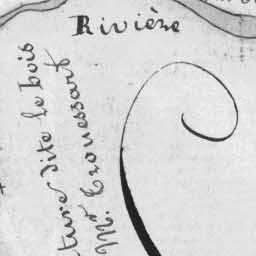 Rivière
ture dite le bois
Mr. Trouessart